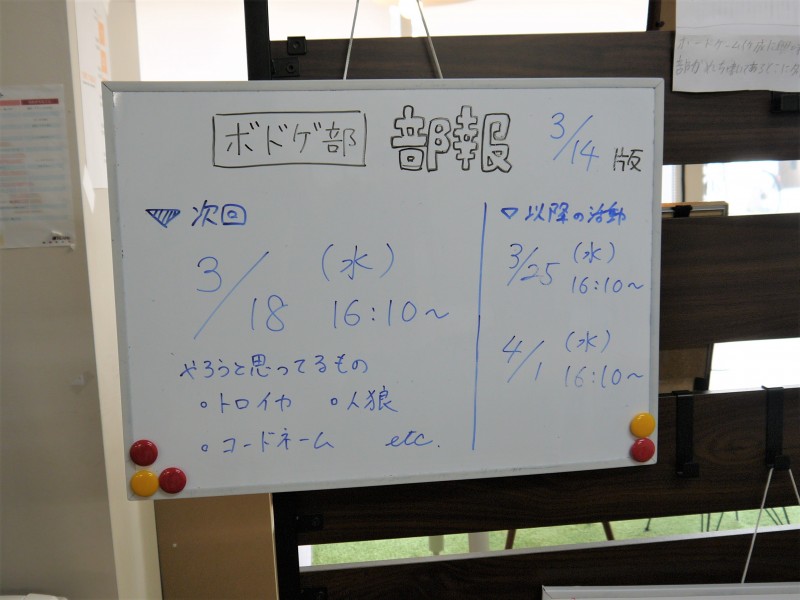 ボドゲ部 部報 3/14 版
▼ 次回
3/18 (水) 16:10~
やろうと思ってるもの
◦トロイカ ◦人狼
◦コードネーム etc.
▽ 以降の活動
3/25 (水) 16:10~
4/1 (水) 16:10~